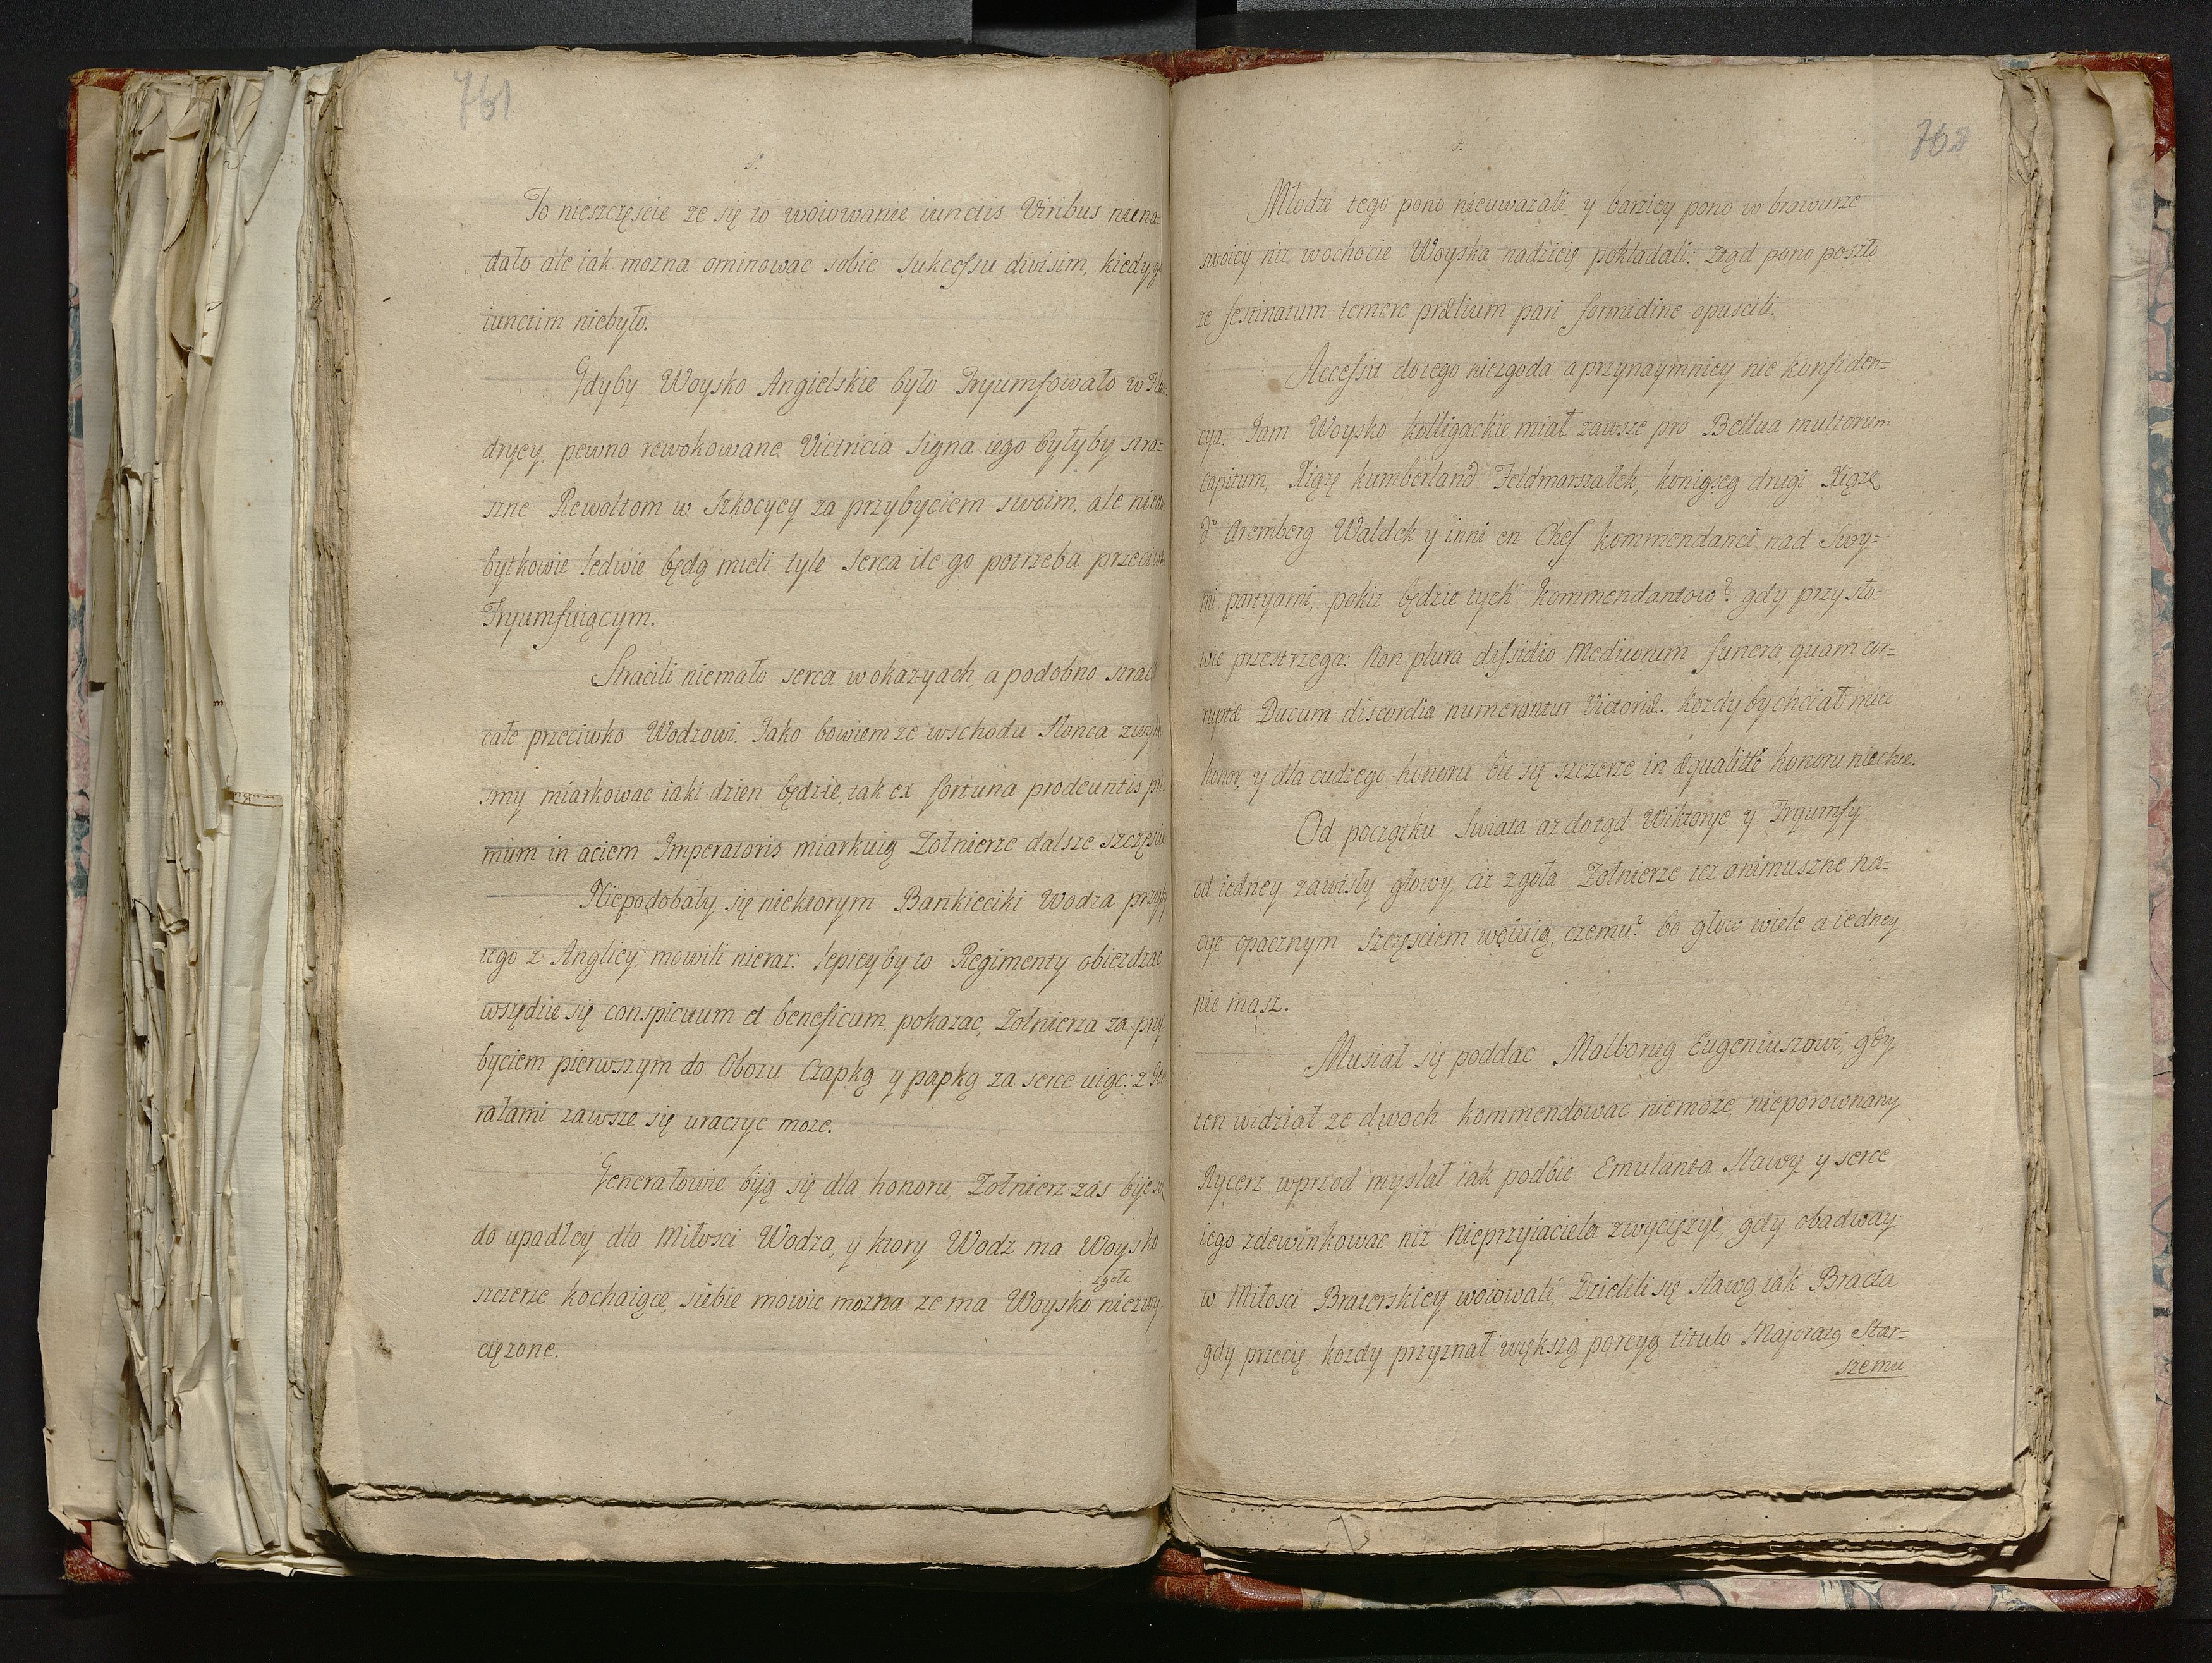 761
To nieszczęscie ze się to woiowanie iunctis Viribus niena-
dało ale iak mozna ominowac sobie sukcessu divisim, kiedy g
iunctim niebyło.
Gdyby Woysko Angielskie było Tryumfowało w
drycy, pewno rewokowane Victricia Signa iego byłyby stra=
szne Rewoltom w Szkocycy za przybyciem swoim, ale
bytkowie ledwie będą mieli tyle serca ile go potrzeba
Tryumfuiącym.
Stracili niemało serca wokazyach, a podobno
całe przeciwko Wodzowi. Jako bowiem ze wschodu Słonca
smy miarkowac iaki dzien będzie, tak ex fortuna prodeuntis pri
mum in aciem Imperatoris miarkuią Zołnierze dalsze szczęscie
Niepodobały się niektorym Bankieciki Wodza
tego z Anglicy, mowili nieraz: lepicyby to Regimenty obiezdzac
wszędzie się conspicuum et beneficum pokazac, Zołnierza za przy
byciem pierwszym do Obozu Czapką y papką za serce uiąc: z
rałami zawsze się uraczyc moze.
Generałowie biją się dla honoru, Zołnierz zas bije się
do upadłey dla Miłosci Wodza, y ktory Wodz ma Woysko
zgoła
szczerze kochaigce, siebie mowic mozna ze ma Woysko niezwy-
cięzone.
762
Młodzi tego pono nieuwazali y barziey pono w brawurze
swoiey niz wochocie Woyska nadzieię pokładali: ztąd pono poszło
ze festinatum temere prælium pari formidine opuscili.
Accessit dotego niezgoda aprzynaymniey nie konfiden=
cya. Jam Woysko kolligackie miał zawsze pro Bellua multorum
capitum, Xiązę kumberland Feldmarszałek, konigseg drugi Xiązę
d'Aremberg Waldek y inni en Chef kommendanci nad Swy=
mi partyami, pokiz będzie tych kommendantow? gdy przysło=
wie przestrzega: Non plura dissidio Medicorum funera quam cor=
ruptæ Ducum discordia numerantur Victoriæ. kozdy bychciał miec
honor, y dla cudzego honoru bic się szczerze in æqualitte honoru niechce.
Od początku Swiata az dotąd Wiktorye y Tryumfy
od iedney zawisły głowy, ciz zgoła Zołnierze tez animuszne na=
cye opacznym szczęsciem woiuią, czemu? bo głow wiele a iedney
nie masz.
Musiał się poddac Malborug Eugeniuszowi, gdy
ten widział ze dwoch kommendowac niemoze, nieporownany
Rycerz wprzod myslał iak podbic Emulanta Sławy y serce
iego zdewinkowac niz Nieprzyiaciela zwycięzyc, gdy obadway
w Miłosci Braterskiey woiowali, Dzielili się sławą iak Bracia
gdy przecię kozdy przyznał większą porcyą titulo Majoratg Star=
szemu